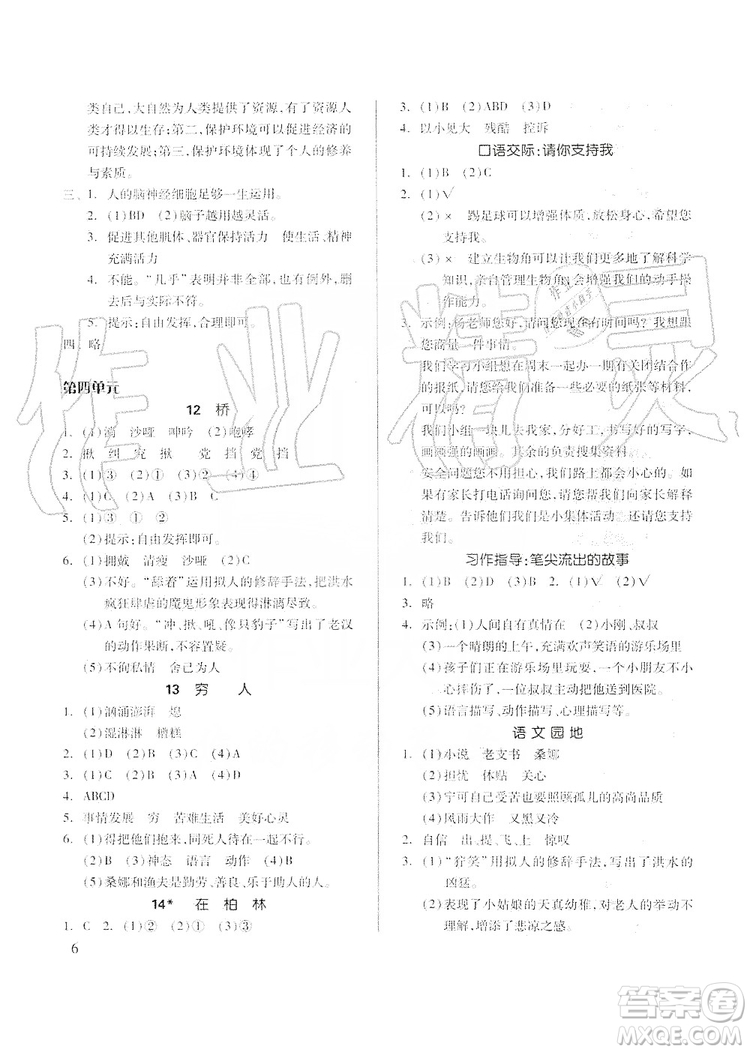 类自己,大自然为人类提供了资源,有了资源人
类才得以生存;第二,保护环境可以促进经济的
可持续发展;第三,保护环境体现了个人的修养
与素质。
三、1. 人的脑神经细胞足够一生运用。
2. (1)BD (2)脑子越用越灵活。
3. 促进其他肌体、器官保持活力 使生活,精神
充满活力
4. 不能。“几乎”表明并非全部,也有例外,删
去后与实际不符。
5. 提示:自由发挥,合理即可。
四、略
第四单元
12 桥
1. (1)淌 沙哑 呻吟 (2)咆哮
2. 揪 纠 究 揪 党 挡 党 挡
3. (1)③ (2)①② (3)②④① (4)③
4. (1)C (2)A (3)B (4)C
5. (1)③ ① ②
(2)提示:自由发挥即可。
6. (1)拥戴 清瘦 沙哑 (2)C
(3)不好。“舔着”运用拟人的修辞手法,把洪水
疯狂肆虐的魔鬼形象表现得淋漓尽致。
(4)A句好。“冲、揪、吼、像只豹子”写出了老汉
的动作果断,不容置疑。
(5)不徇私情 舍己为人
13 穷 人
1. (1)汹涌澎湃 熄
(2)湿淋淋 糟糕
2. (1)D (2)B (3)C (4)A
3. (1)A (2)A (3)B
4. ABCD
5. 事情发展 穷 苦难生活 美好心灵
6. (1)得把他们抱来,同死人待在一起不行。
(2)B (3)神态 语言 动作 (4)B
(5)桑娜和渔夫是勤劳、善良、乐于助人的人。
14* 在 柏 林
1. C 2. (1)② (2)① (3)①
3. (1)B (2)ABD (3)D
4. 以小见大 残酷 控诉
口语交际:请你支持我
1. (1)B (2)C
2. (1)√
(2)× 踢足球可以增强体质,放松身心,希望您
支持我。
(3)× 建立生物角可以使我们更多地了解科学
知识,亲自管理生物角可以增强我们的动手操
作能力。
3. 示例:杨老师您好,请问您现在有时间吗?我想跟
您商量一件事情。
我们学习小组想在周末一起办一期有关团结合作
的板报,想请您准备一些必要的纸张等材料,
可以吗?
我们小组一块儿去我家,分好工,书写好的写字,
画画强的画画。其余的负责搜集资料。
安全问题您大可放心,我们路上都会小心的。如
果有家长打电话询问您,请您帮我们向家长解释
清楚。告诉家长,我们这是小集体活动,还请您支
持我们。
习作指导:笔尖流出的故事
1. (1)B (2)D 2. (1)√ (2)√
3. 略
4. 示例:(1)人间自有真情在 (2)小刚、叔叔
(3)一个晴朗的上午,充满欢声笑语的游乐场里
(4)孩子们正在游乐场里玩耍,一个小朋友不小
心摔伤了,一位叔叔主动把他送到医院。
(5)语言描写、动作描写、心理描写等。
语 文 园 地
1. (1)小说 老支书 桑娜
(2)担忧 体贴 关心
(3)宁可自己受苦也要照顾孤儿的高尚品质
(4)风雨大作 又黑又冷
2. 自信 出、提、飞、上 惊叹
3. (1)“狞笑”用拟人的修辞手法,写出了洪水的
凶猛。
(2)表现了小姑娘的天真幼稚,对老兵遭遇的
不理解,增添了悲凉之感。
6
作业
精灵
答案卷
MXQE.COM